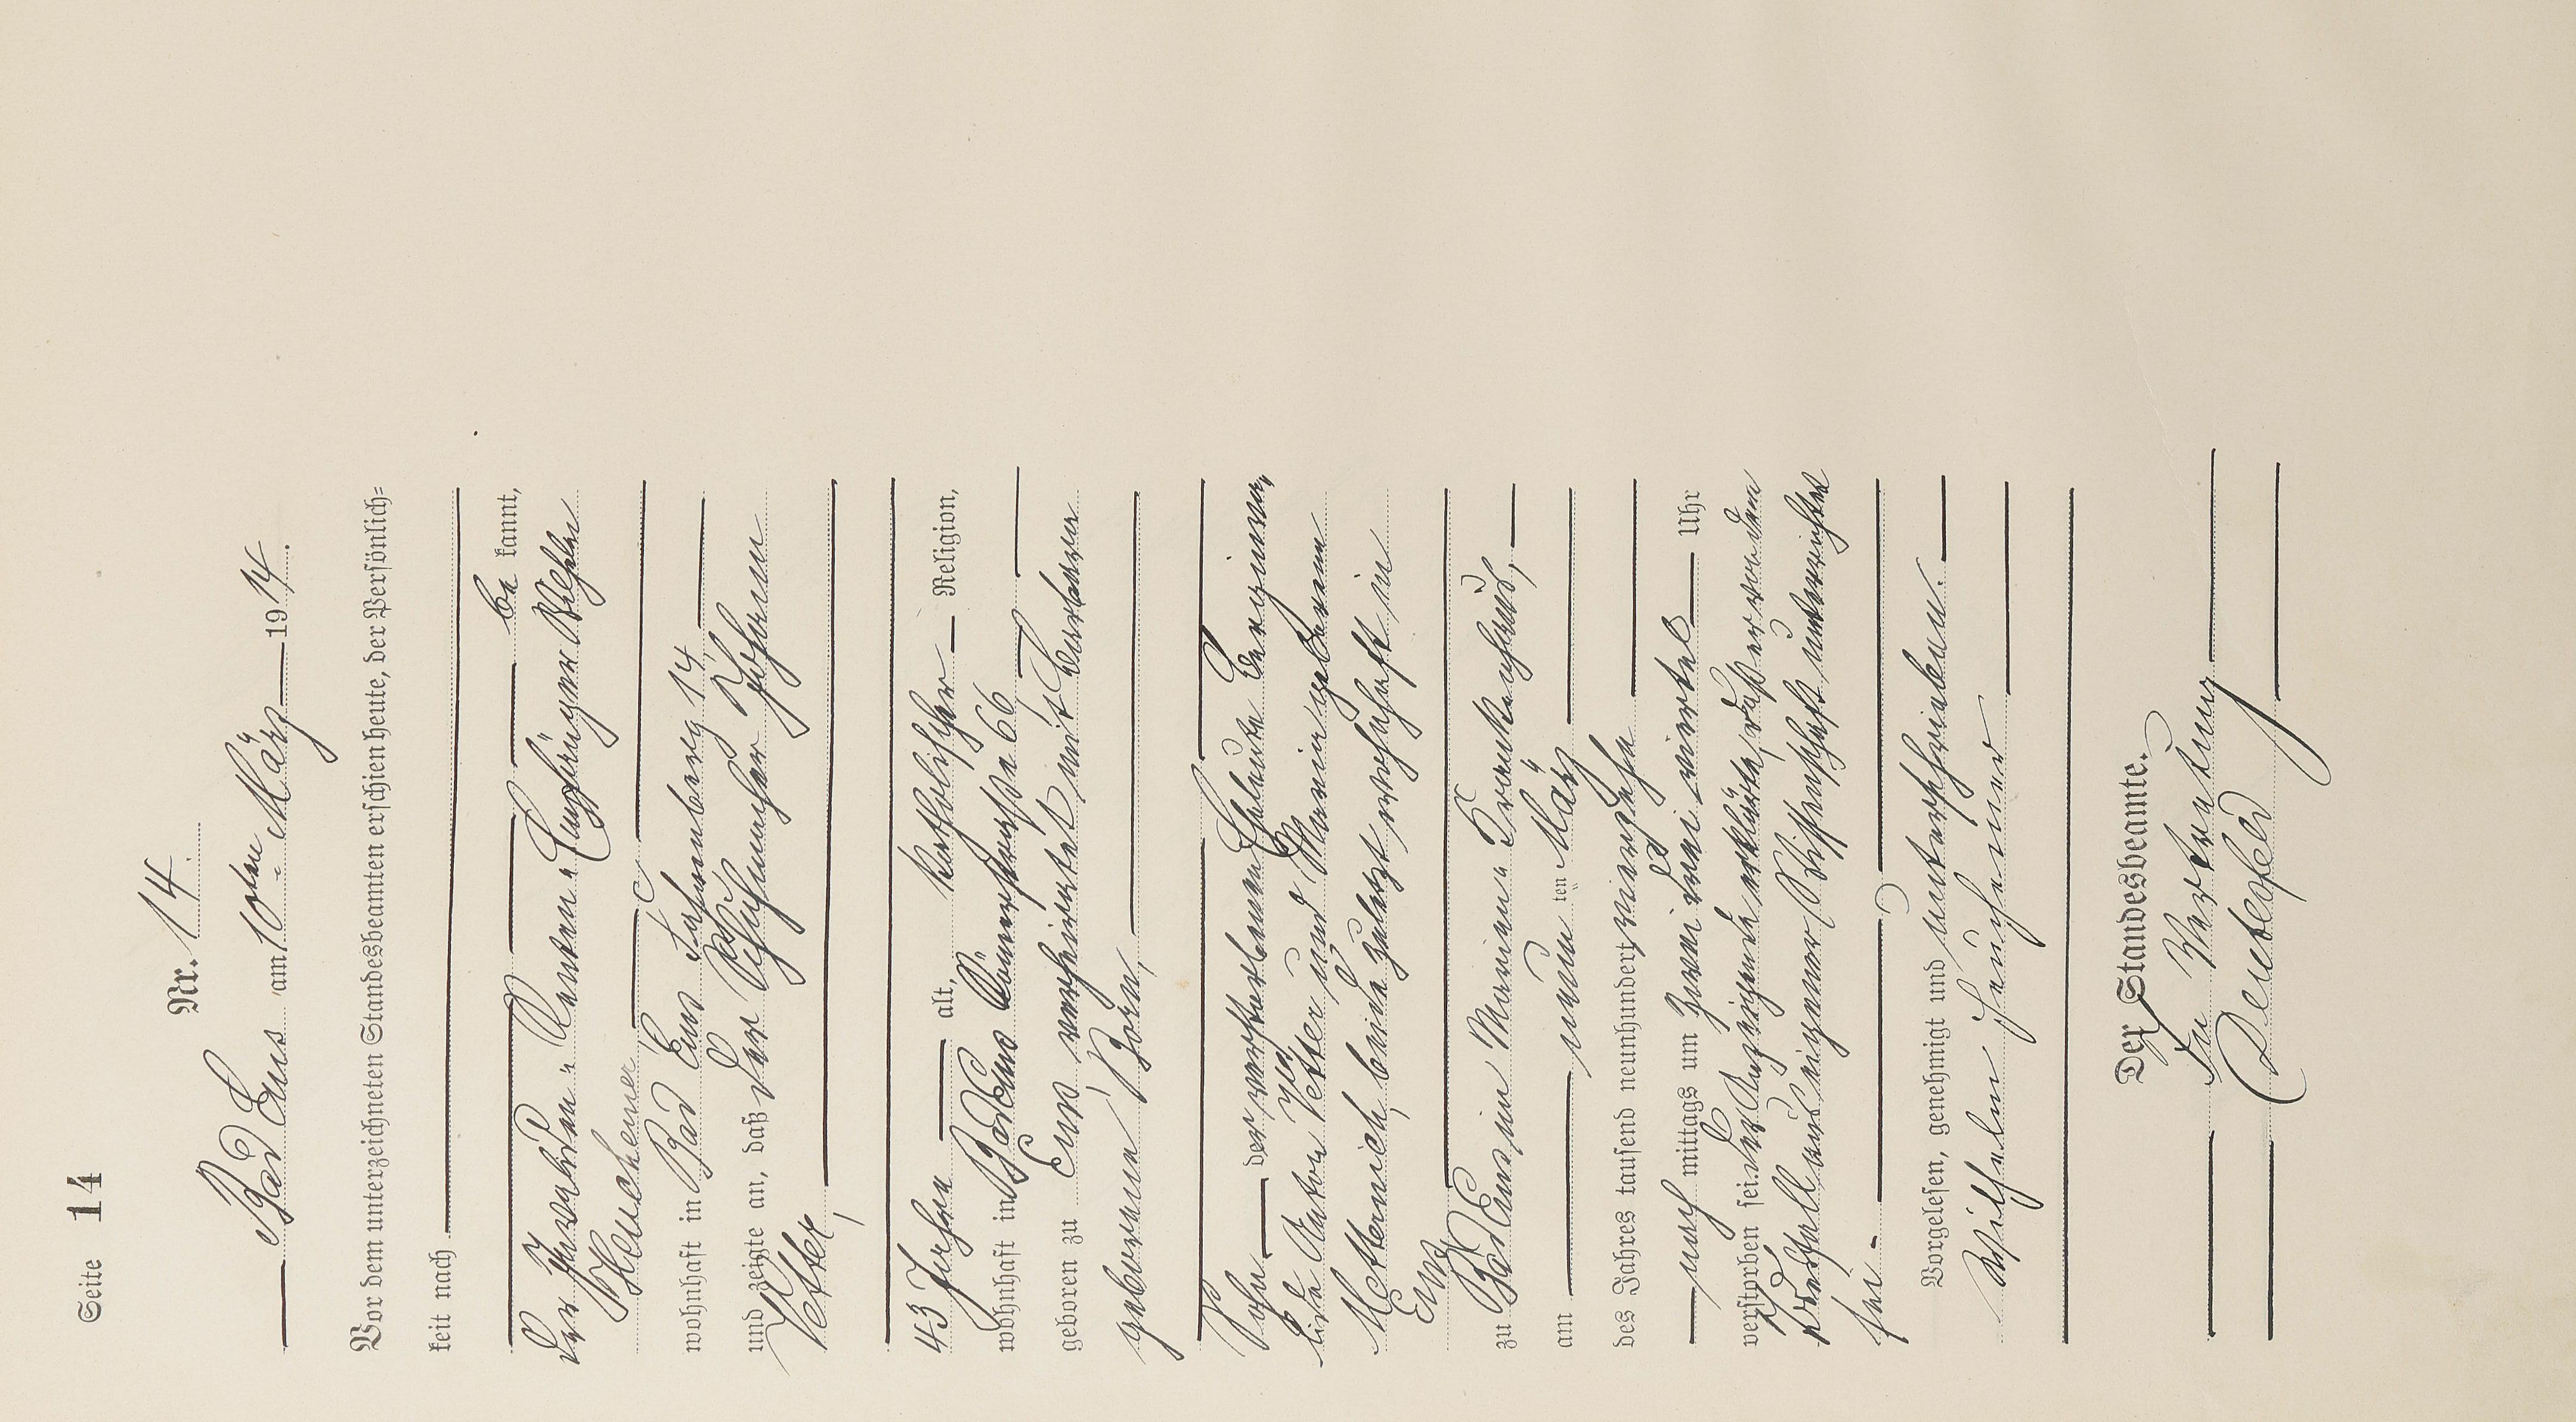 Seite 14
Nr. 14.
Bad Ems am 10ten März 1914.
Vor dem unterzeichneten Standesbeamten erschien heute, der Persönlich-
keit nach
be kannt,
der Invaliden-Renten-Empfänger Wilhelm
Heuchemer
wohnhaft in Bad Ems, 14
und zeigte an, daß der Schuhmacher Johann
Vetter,
43 Jahre alt, katholischer Religion,
wohnhaft in Bad Ems Römerstraße 66,
geboren zu Ems verheiratet mit Barbara
geborene Born,
Sohn der verstorbenen Eheleute
Anton Vetter und Maria geborene
Metternich, beide zuletzt wohnhaft in
Ems
zu Bad Ems, im Marien-Krankenhaus,
am neun ten März
des Jahres tausend neunhundert vierzehn
nach mittags um zwei drei viertel Uhr
verstorben sei. Der Anzeigende erklärte, daß er von dem
Todesfall aus eigener Wissenschaft unterrichtet
sei.
Vorgelesen, genehmigt und unterschrieben.
Wilhelm Heuchemer
Der Standesbeamte.
In Vertretung